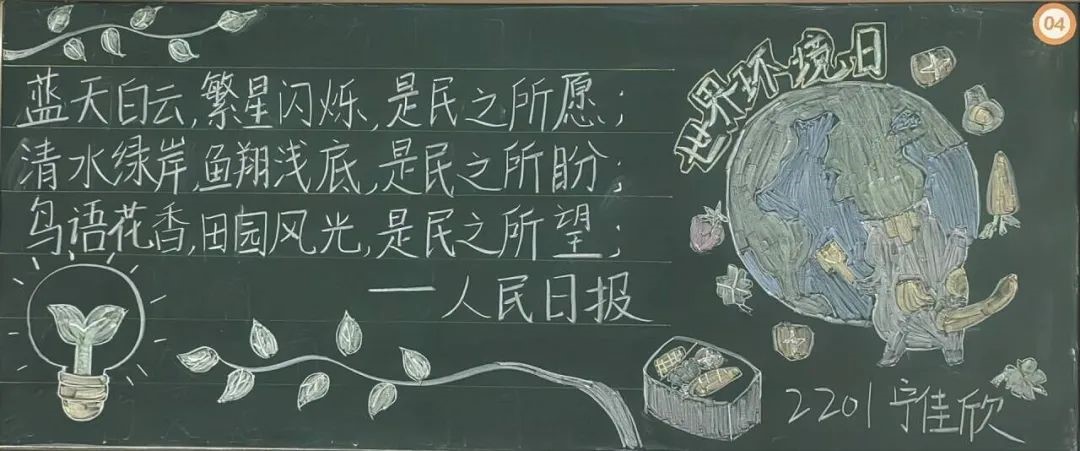 04
世界环境日
蓝天白云,繁星闪烁,是民之所愿;
清水绿岸,鱼翔浅底,是民之所盼;
鸟语花香,田园风光,是民之所望;
——人民日报
2201 宁佳欣